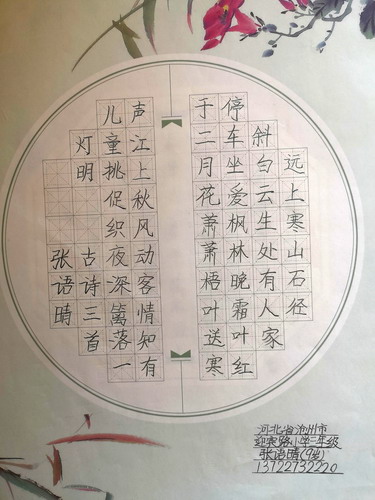 远上寒山石径
斜白云生处有人家
停车坐爱枫林晚霜叶红
于二月花萧萧梧叶送寒
声江上秋风动客情知有
儿童挑促织夜深篱落一
灯明
古诗三首
张语晴
河北省沧州市
迎宾路小学三年级
张语晴(9岁)
13722732220